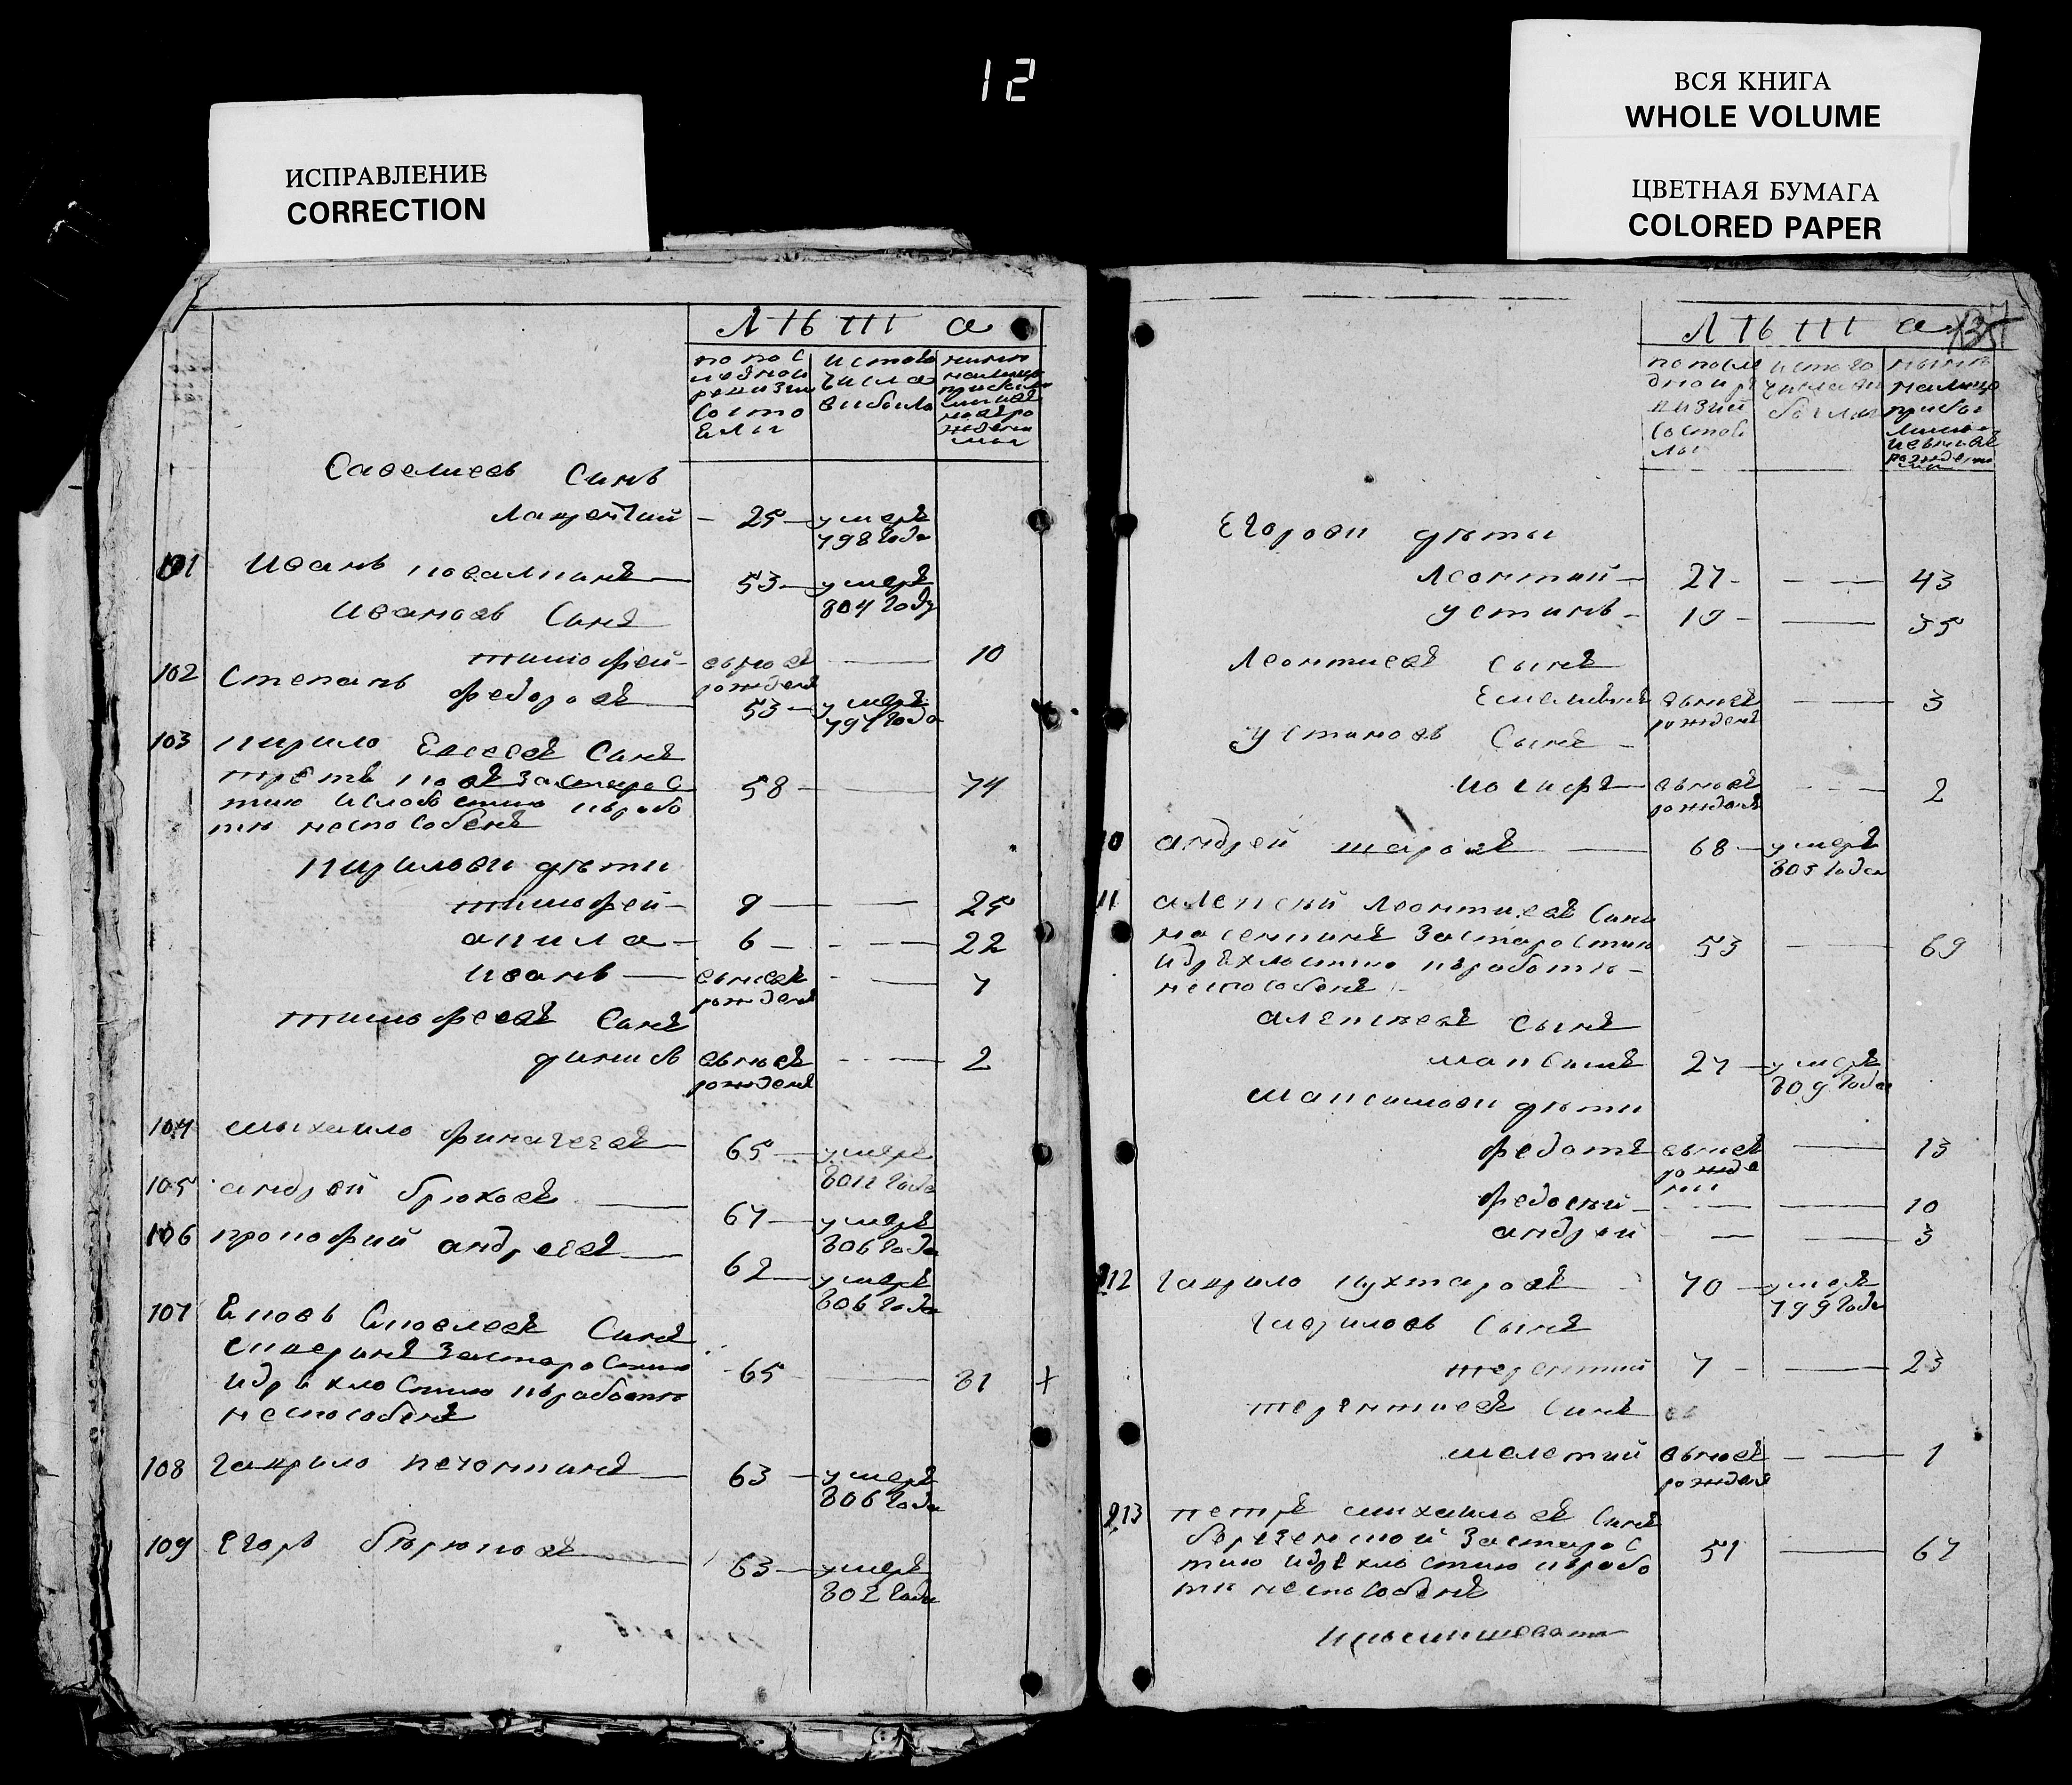 12
ИСПРАВЛЕНИЕ
CORRECTION
ВСЯ КНИГА
WHOLE VOLUME
ЦВЕТНАЯ БУМАГА
COLORED PAPER
Лѣта
по пос
ледной
ревизии
состо
яли
ис того
числа
выбыло
Савелиевъ Сынъ
Лаврентий 25 умеръ
798 года
101 Иванъ 53 умеръ
804 году
Ивановъ Сынъ
тимофей вновь рожденъ 10
102 Степанъ федоровъ 53 умеръ
797 года
103 Кирило Елисеевъ Сынъ
за старос 58 74
тию и слабостию къ рабо
тѣ неспособенъ
Кириловы дѣти
тимофей 9 25
акила 6 22
иванъ вновь рожденъ 7
тимофеевъ Сынъ
вновь рожденъ 2
104 михаило 65 умеръ
1811 года
105 андрей брюховъ 67 умеръ
806 года
106 прокофий андреевъ 62 умеръ
806 года
107 Яковъ Сынъ
за старостию 65 81
и дряхлостию къ работѣ
неспособенъ
108 гаврило 63 умеръ
806 года
109 егоръ бирюковъ 63 умеръ
802 года
Лѣта
по после
дной ре
визии
состоя
ли
ис того
числа вы
было
Егоровы дѣти
Леонтий 27 43
устинъ 19 35
Леонтиевъ сынъ
Емельянъ вновь рожденъ 3
устиновъ Сынъ
иосифъ вновь рожденъ 2
10 андрей шаровъ 68 умеръ
805 года
11 алексей Леонтиевъ Сынъ
за старостию 53 69
и дряхлостию къ работѣ
неспособенъ
алексѣевъ сынъ
максимъ 27 умеръ
809 года
максимовы дѣти
федотъ вновь рожде
ны 13
федосий 10
андрей 3
212 гаврило кухтаровъ 70 умеръ
799 года
гавриловъ Сынъ
терентий 7 23
терентиевъ Сынъ
мелетий вновь рожденъ 1
213 петръ михаиловъ Сынъ
за старос 51 67
тию и дряхлостию к рабо
тѣ неспособенъ